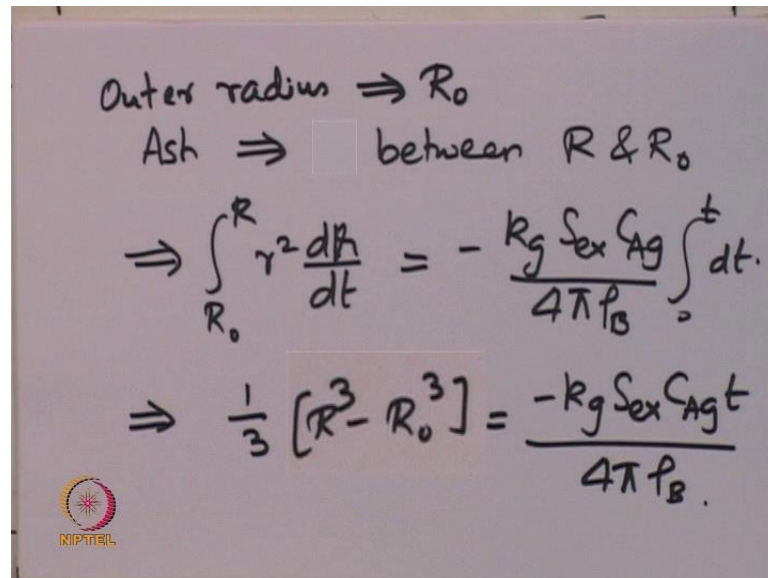 Outer radius ⇒ R₀
Ash ⇒ between R & R₀
⇒ ∫_{R₀}^{R} r² dr/dt = - kg Sex CAg / 4πρB ∫_{0}^{t} dt.
⇒ 1/3 [R³ - R₀³] = -kg Sex CAg t / 4πρB.
NPTEL